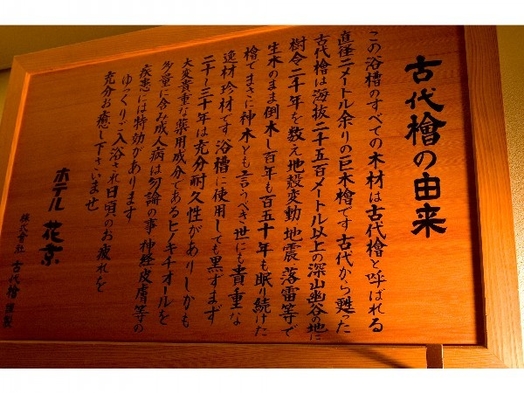 古代檜の由来
この浴槽のすべての木材は古代檜と呼ばれる
直径二メートル余りの巨木檜です古代から甦った
古代檜は海抜二千五百メートル以上の深山幽谷の地に
樹令二千年を数え地殻変動 地震 落雷等で
生木のまま倒木し百年も百五十年も眠り続けた
檜でまさに神木とも言うべき世にも貴重な
逸材 珍材です 浴槽に使用しても黒ずまず
二十〜三十年は充分耐久性がありしかも
大変貴重な薬用成分であるヒノキチオールを
多量に含み成人病は勿論の事 神経皮膚等の
疾患には特効があります
ゆっくりご入浴され日頃のお疲れを
充分お癒し下さいませ
ホテル 花京
株式会社 古代檜謹製